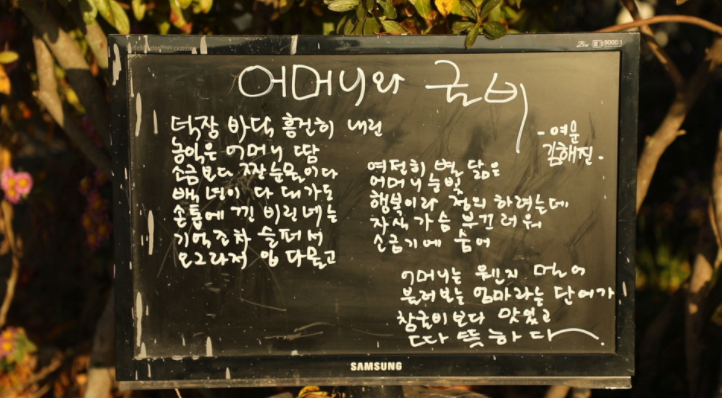 어머니와 굴비
- 여운
김해진 -
덕장 바닥 흥건히 내린
농익은 어머니 땀
소금보다 짠 눈물이다
백 년이 다 돼가도
손톱에 낀 비린내는
기억조차 슬퍼서
오그라져 입 다물고
여전히 별 닮은
어머니 눈빛
행복이라 정의 하려는데
자식 가슴 부끄러워
소금기에 숨어
어머니는 웬지 멀어
불러보는 엄마라는 단어가
참굴비보다 맛있고
따뜻하다.
SAMSUNG